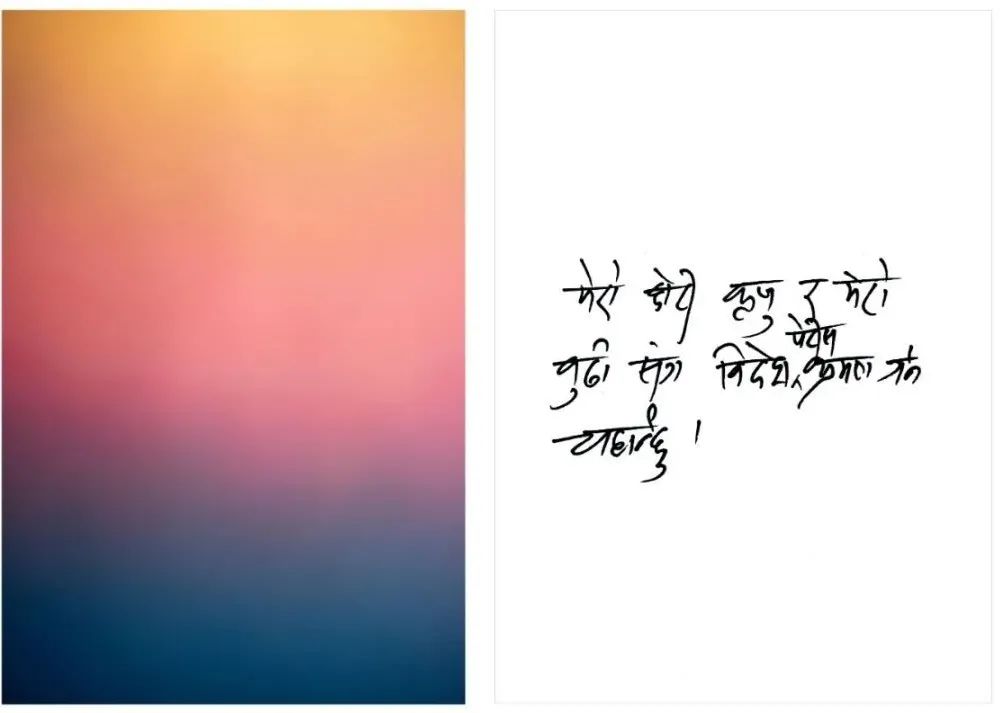 मेरो छोरी कृजु र मेरो
बुढी संग विदेश पैदल भ्रमण गर्न
चाहान्छु ।